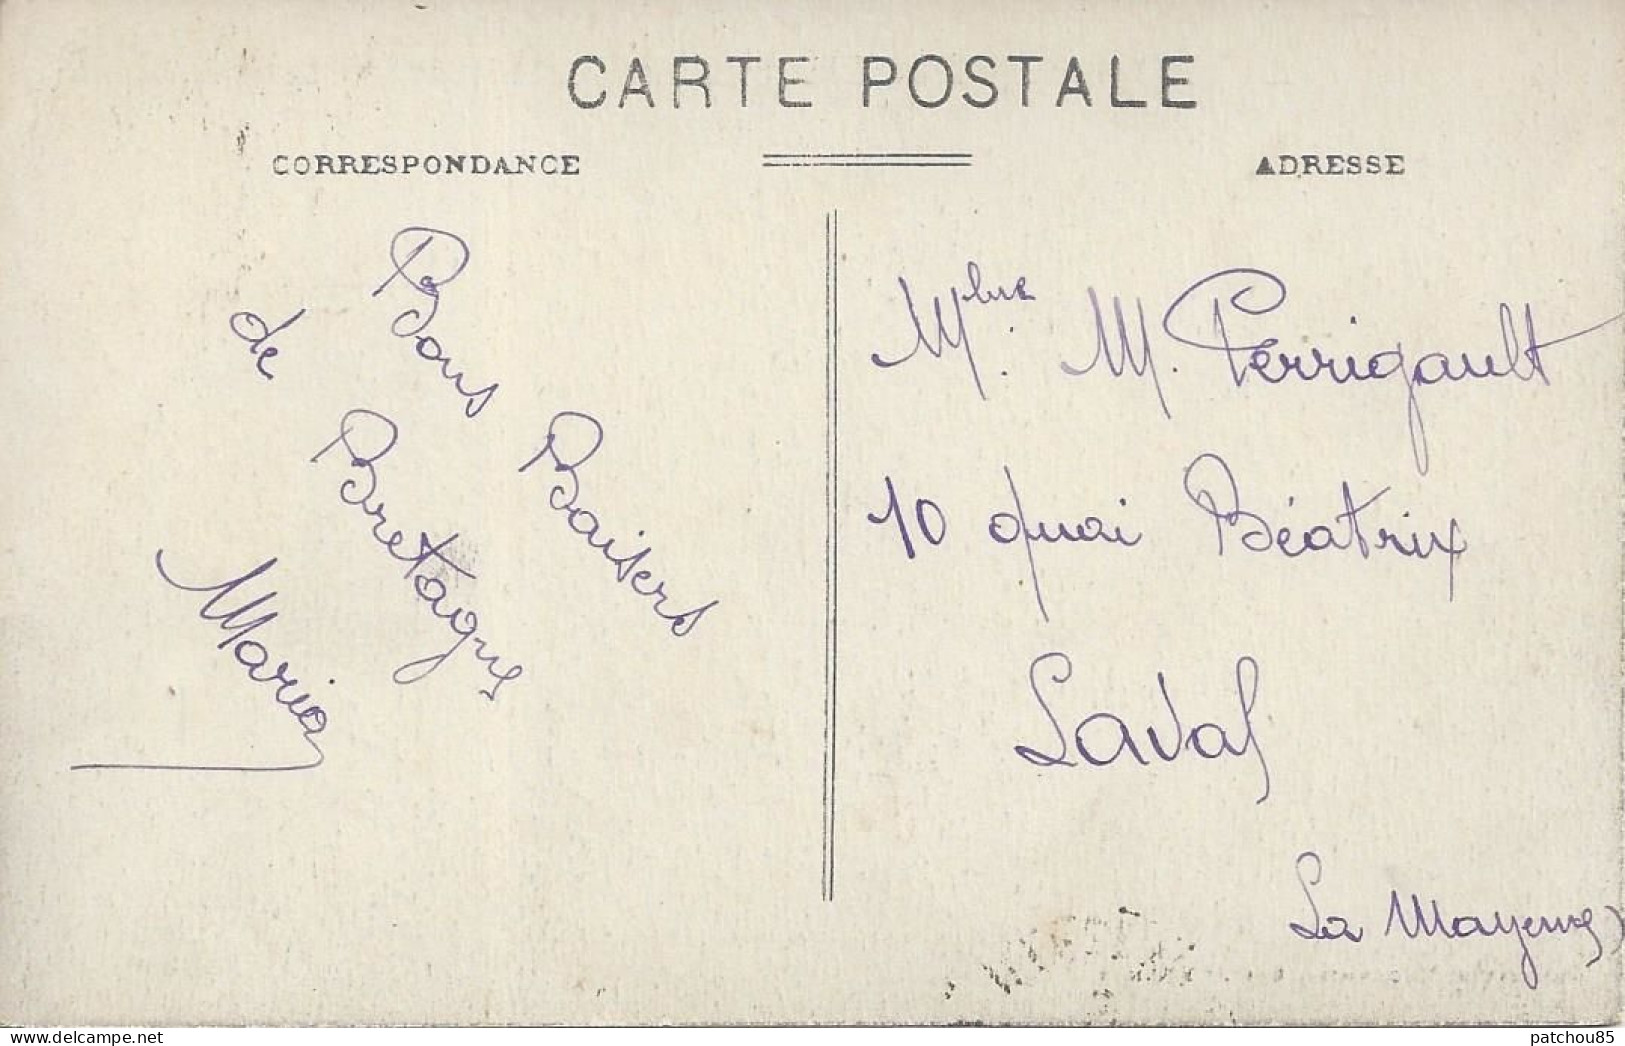 CARTE POSTALE
CORRESPONDANCE
ADRESSE
Bons Baisers
de Bretagne
Maria
Mlle. M. Perrigault
10 quai Béatrix
Laval
La Mayenne)
delcampe.net
patchou85